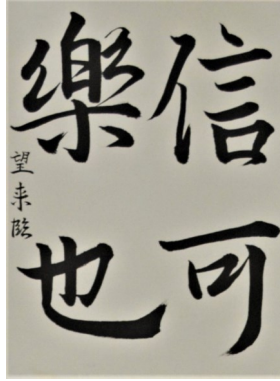 信可
樂也
望来臨